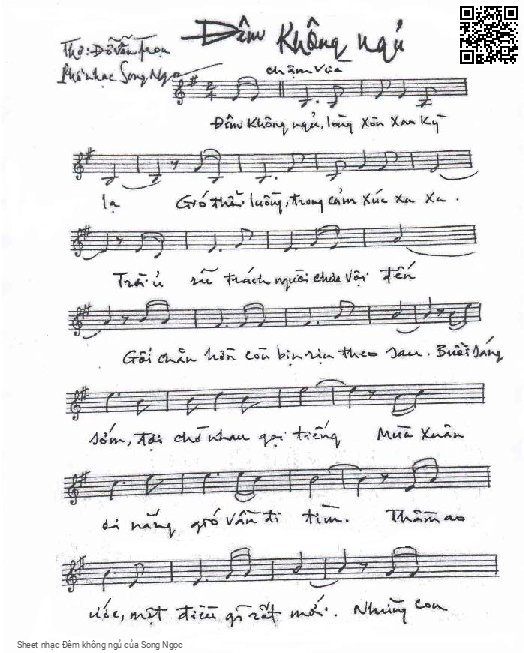 Đêm Không ngủ
Thơ: Đỗ Văn
Phổ nhạc Song Ngọc
chậm vừa
Đêm Không ngủ, lòng Xôn Xao Kỳ
lạ Gió từng luồng, trong cảm Xúc Xa Xa.
Trời ủ rũ trách người chưa vội đến
Gối chăn hờn còn bịn rịn theo sau. Buổi sáng
sớm, đợi chờ nhau gọi tiếng Mùa Xuân
nắng gió vẫn đi tìm. Thầm ao
ước, một điều gì rất mới. Những con
Sheet nhạc Đêm không ngủ của Song Ngọc